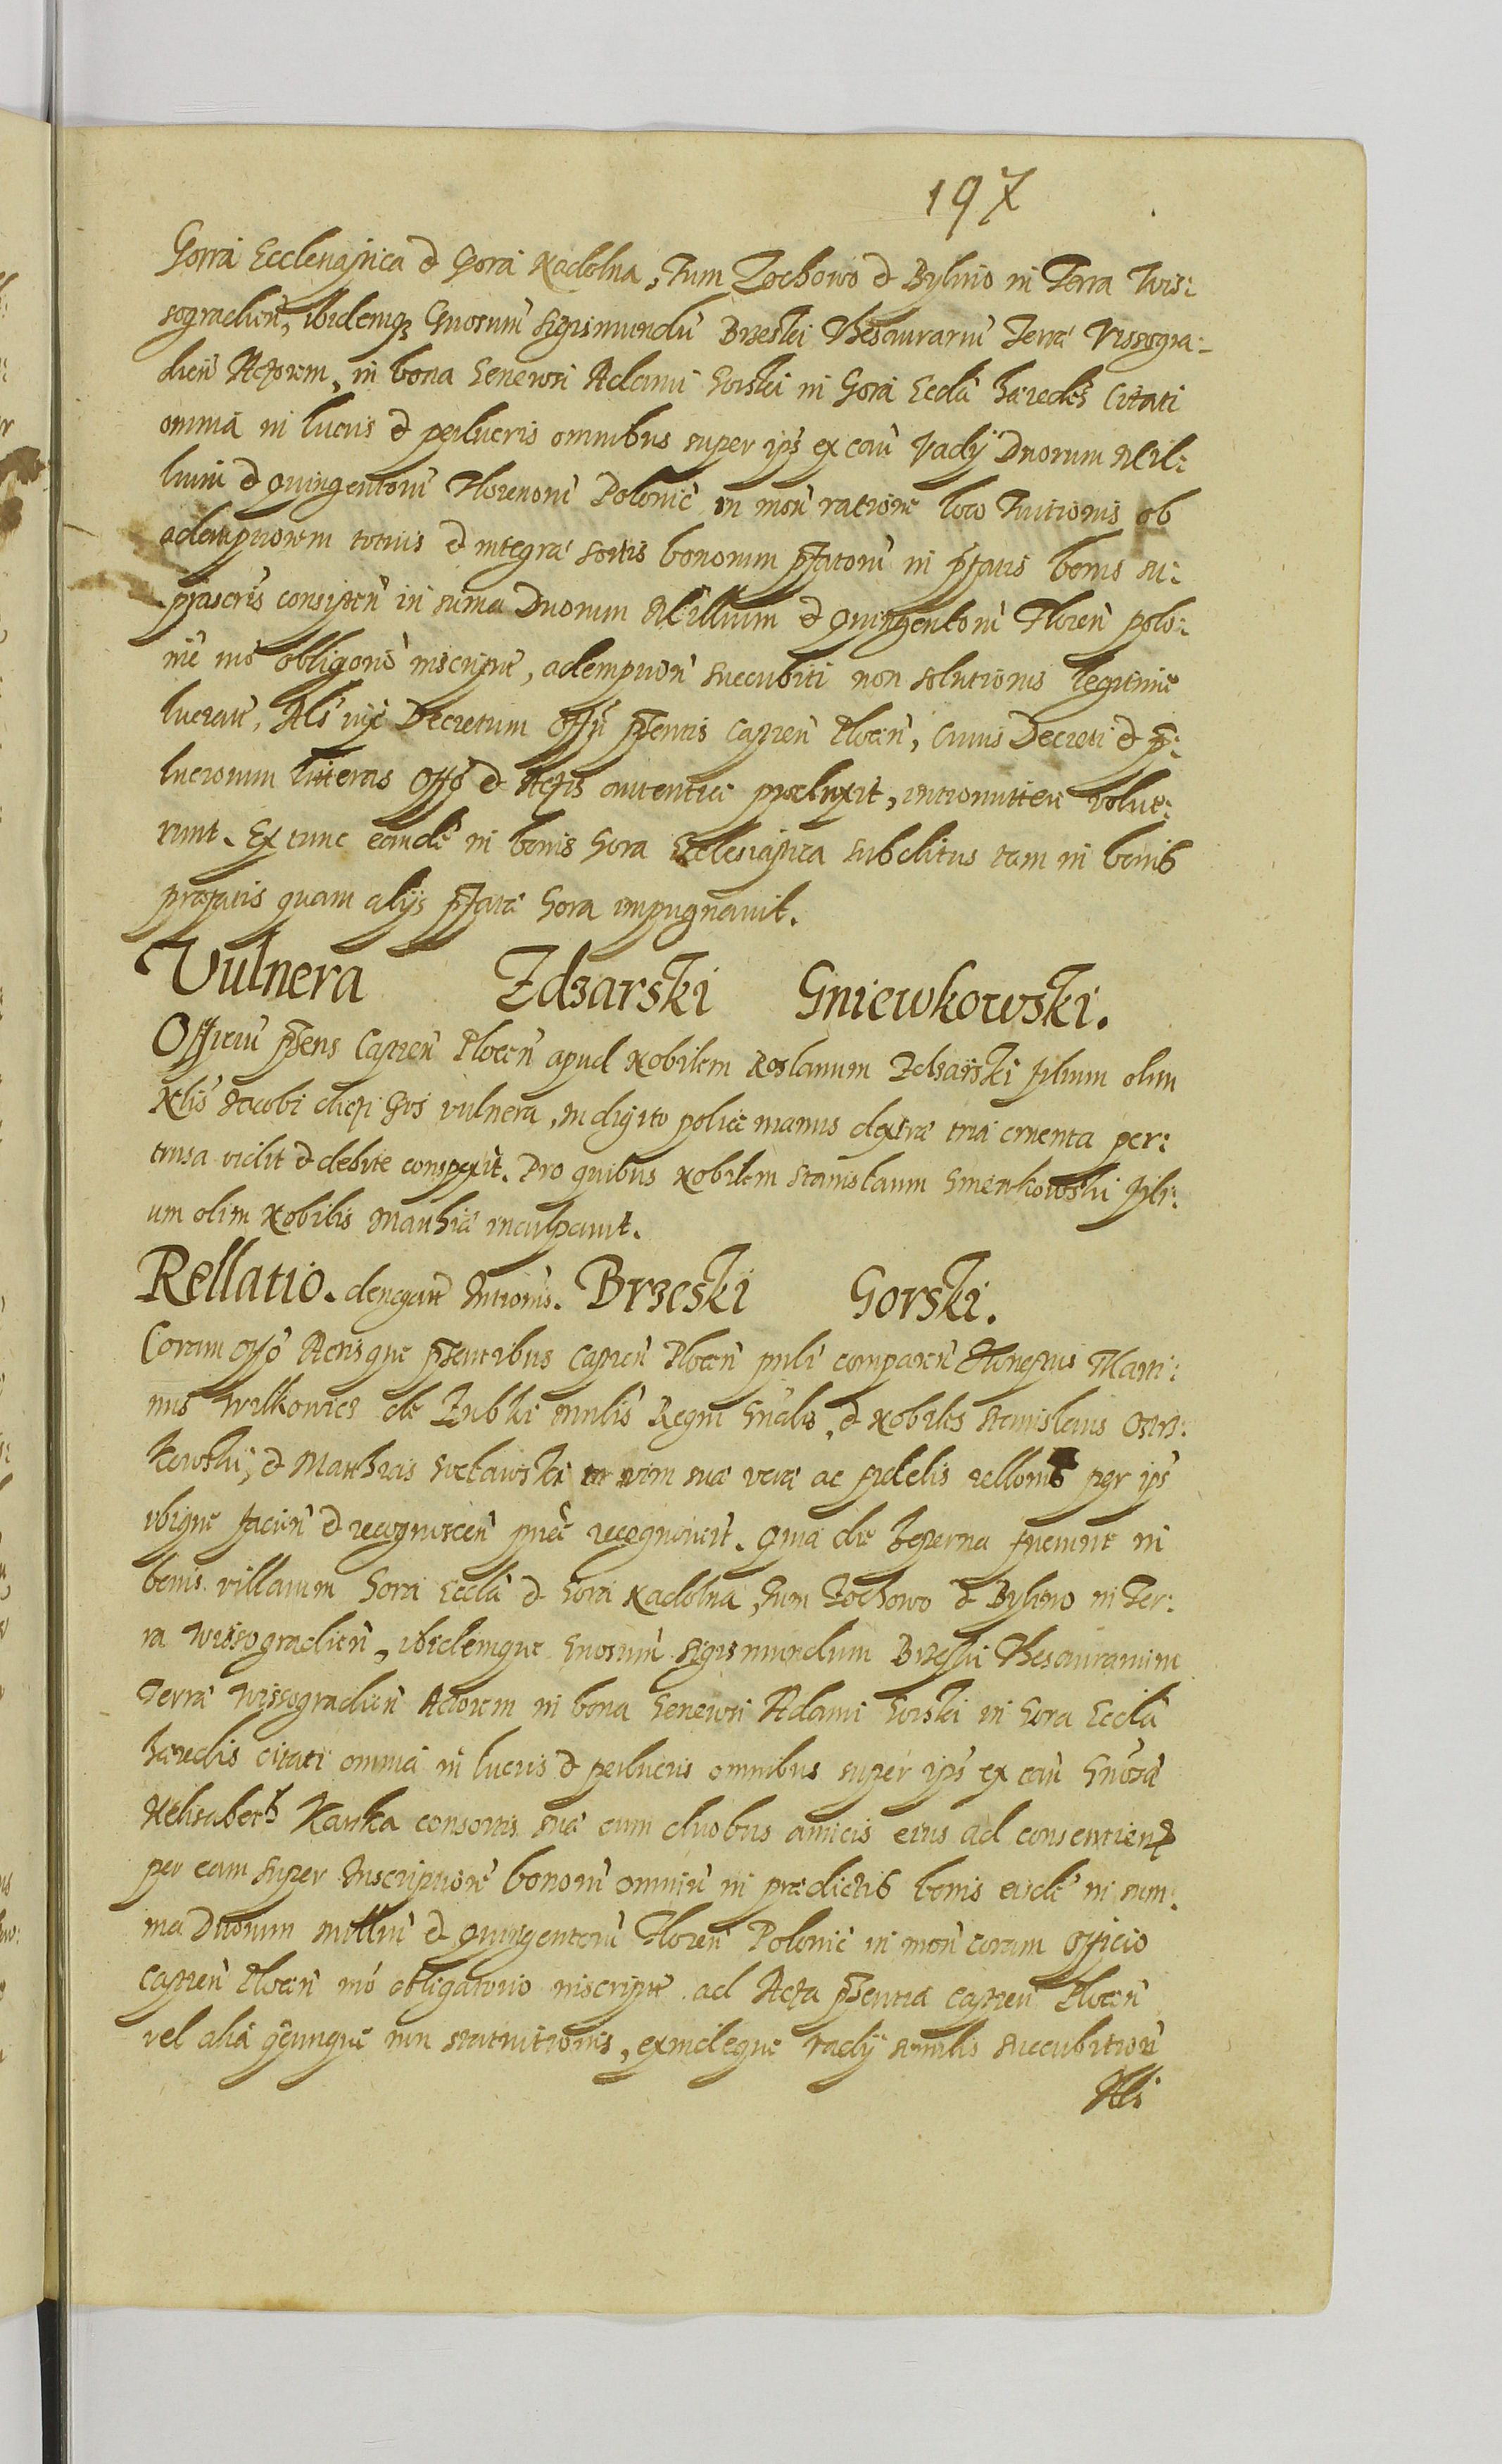 197
Gorra Ecclesiastica et Gora Nadolna, Tum Zochowo et Bylino in Terra Wis:
sogradien, ibidemq Gnosum Sigismundu Brzeski Thesaurariu Terra Vissogra-
dien Actorem, in bona Generosi Adami Gorski in Gora Eccla haredes Citati
omnia in lucris et perlucris omnibus super ips ex cau Vadij Duorum Mil:
lium et quingentoru Florenoru Polonic in mon ratione loco Tuitionis ob
adempuonem totius et integra sortis bonorum pfatoru in pfatis bonis su:
prascris consisten in suma Duorum Millium et quingentoru Floren polo:
nic mo obligorio inscript, adempuon succubiti non solutionis legitime
lucrati, Als vig Decretum Offi pntis Capnen Plocen, Cuius Decreti et
lucrorum litteras Offo et Actis autentice produxit, intromittere volue:
runt. Ex tunc eande in bonis Gora Ecclesiastica subditus tam in bonis
prafatis quam alijs pfata Gora impugnauit.
Vulnera Zdzarski Gniewkowski.
Officiu pnsens Capnen Plocen apud Nobilem Roslanum Zdzarski filium olim
Nlis Jacobi dicti Gos vulnera, in digito police manus dextra tria cruenta per:
tusa vidit et debite conspexit. Pro quibus Nobilem Stanislaum Gniewkowski fili:
um olim Nobilis Mathia inculpauit.
Rellatio. denegate Intromis. Brzeski Gorski.
Coram Offo Actisque pntibus Capnen Plocen pnli comparen Honestus Marti:
nus Wilkowicz de Zubki mnlis Regni Gnalis, et Nobiles Stanislaus Ostro:
kowski, et Matthias Soclawski in vim sua vera ac fidelis rellonis per ips
ubique facien et recognoscen pnte recognouit. Quia die hesterna fuerunt in
bonis villarum Gora Eccla et Gora Nadolna, Tum Zochowo et Bylino in Ter:
ra Wissogradien, ibidemque Gnosum Sigismundum Brzeski Thesaurarium
Terra Wissogradien Actorem in bona Generosi Adami Gorski in Gora Eccla
haredis citati omnia in lucris et perlucris omnibus super ips ex cau Gnosa
Helisabeth Kanka consortis sua cum duobus amicis eius ad consentiend
per eam super Inscriptione bonoru omniu in pradictis bonis eide in sum:
ma Duorum milliu et quingentoru Floren Polonic in mon coram officio
Capnen Plocen mo obligatorio inscript ad Acta pntia Capnen Plocen
vel alia qcunque non statuitionis, exindeque vadij similis succubition
Als